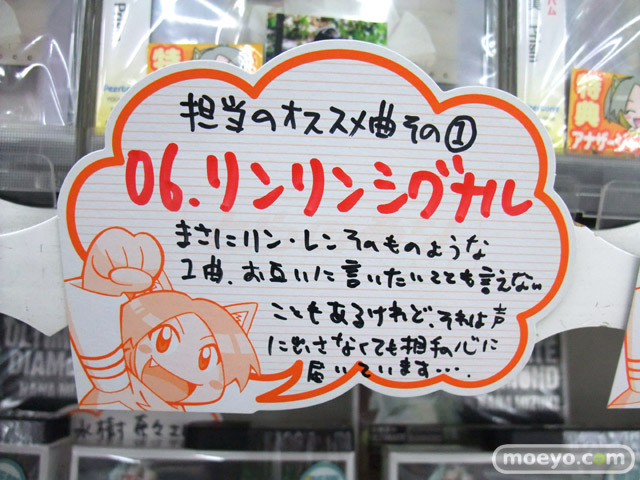 特典
特典
アナザー
担当のオススメ曲その①
06.リンリンシグナル
まさにリン・レンそのものような
1曲、お互いに言いたいことも言えない
こともあるけれど、それは声
に出さなくても相手の心に
届いています…。
水樹奈々
moeyo.com